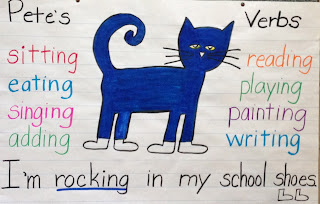 Pete's Verbs
sitting reading
eating playing
singing painting
adding writing
I'm rocking in my school shoes.